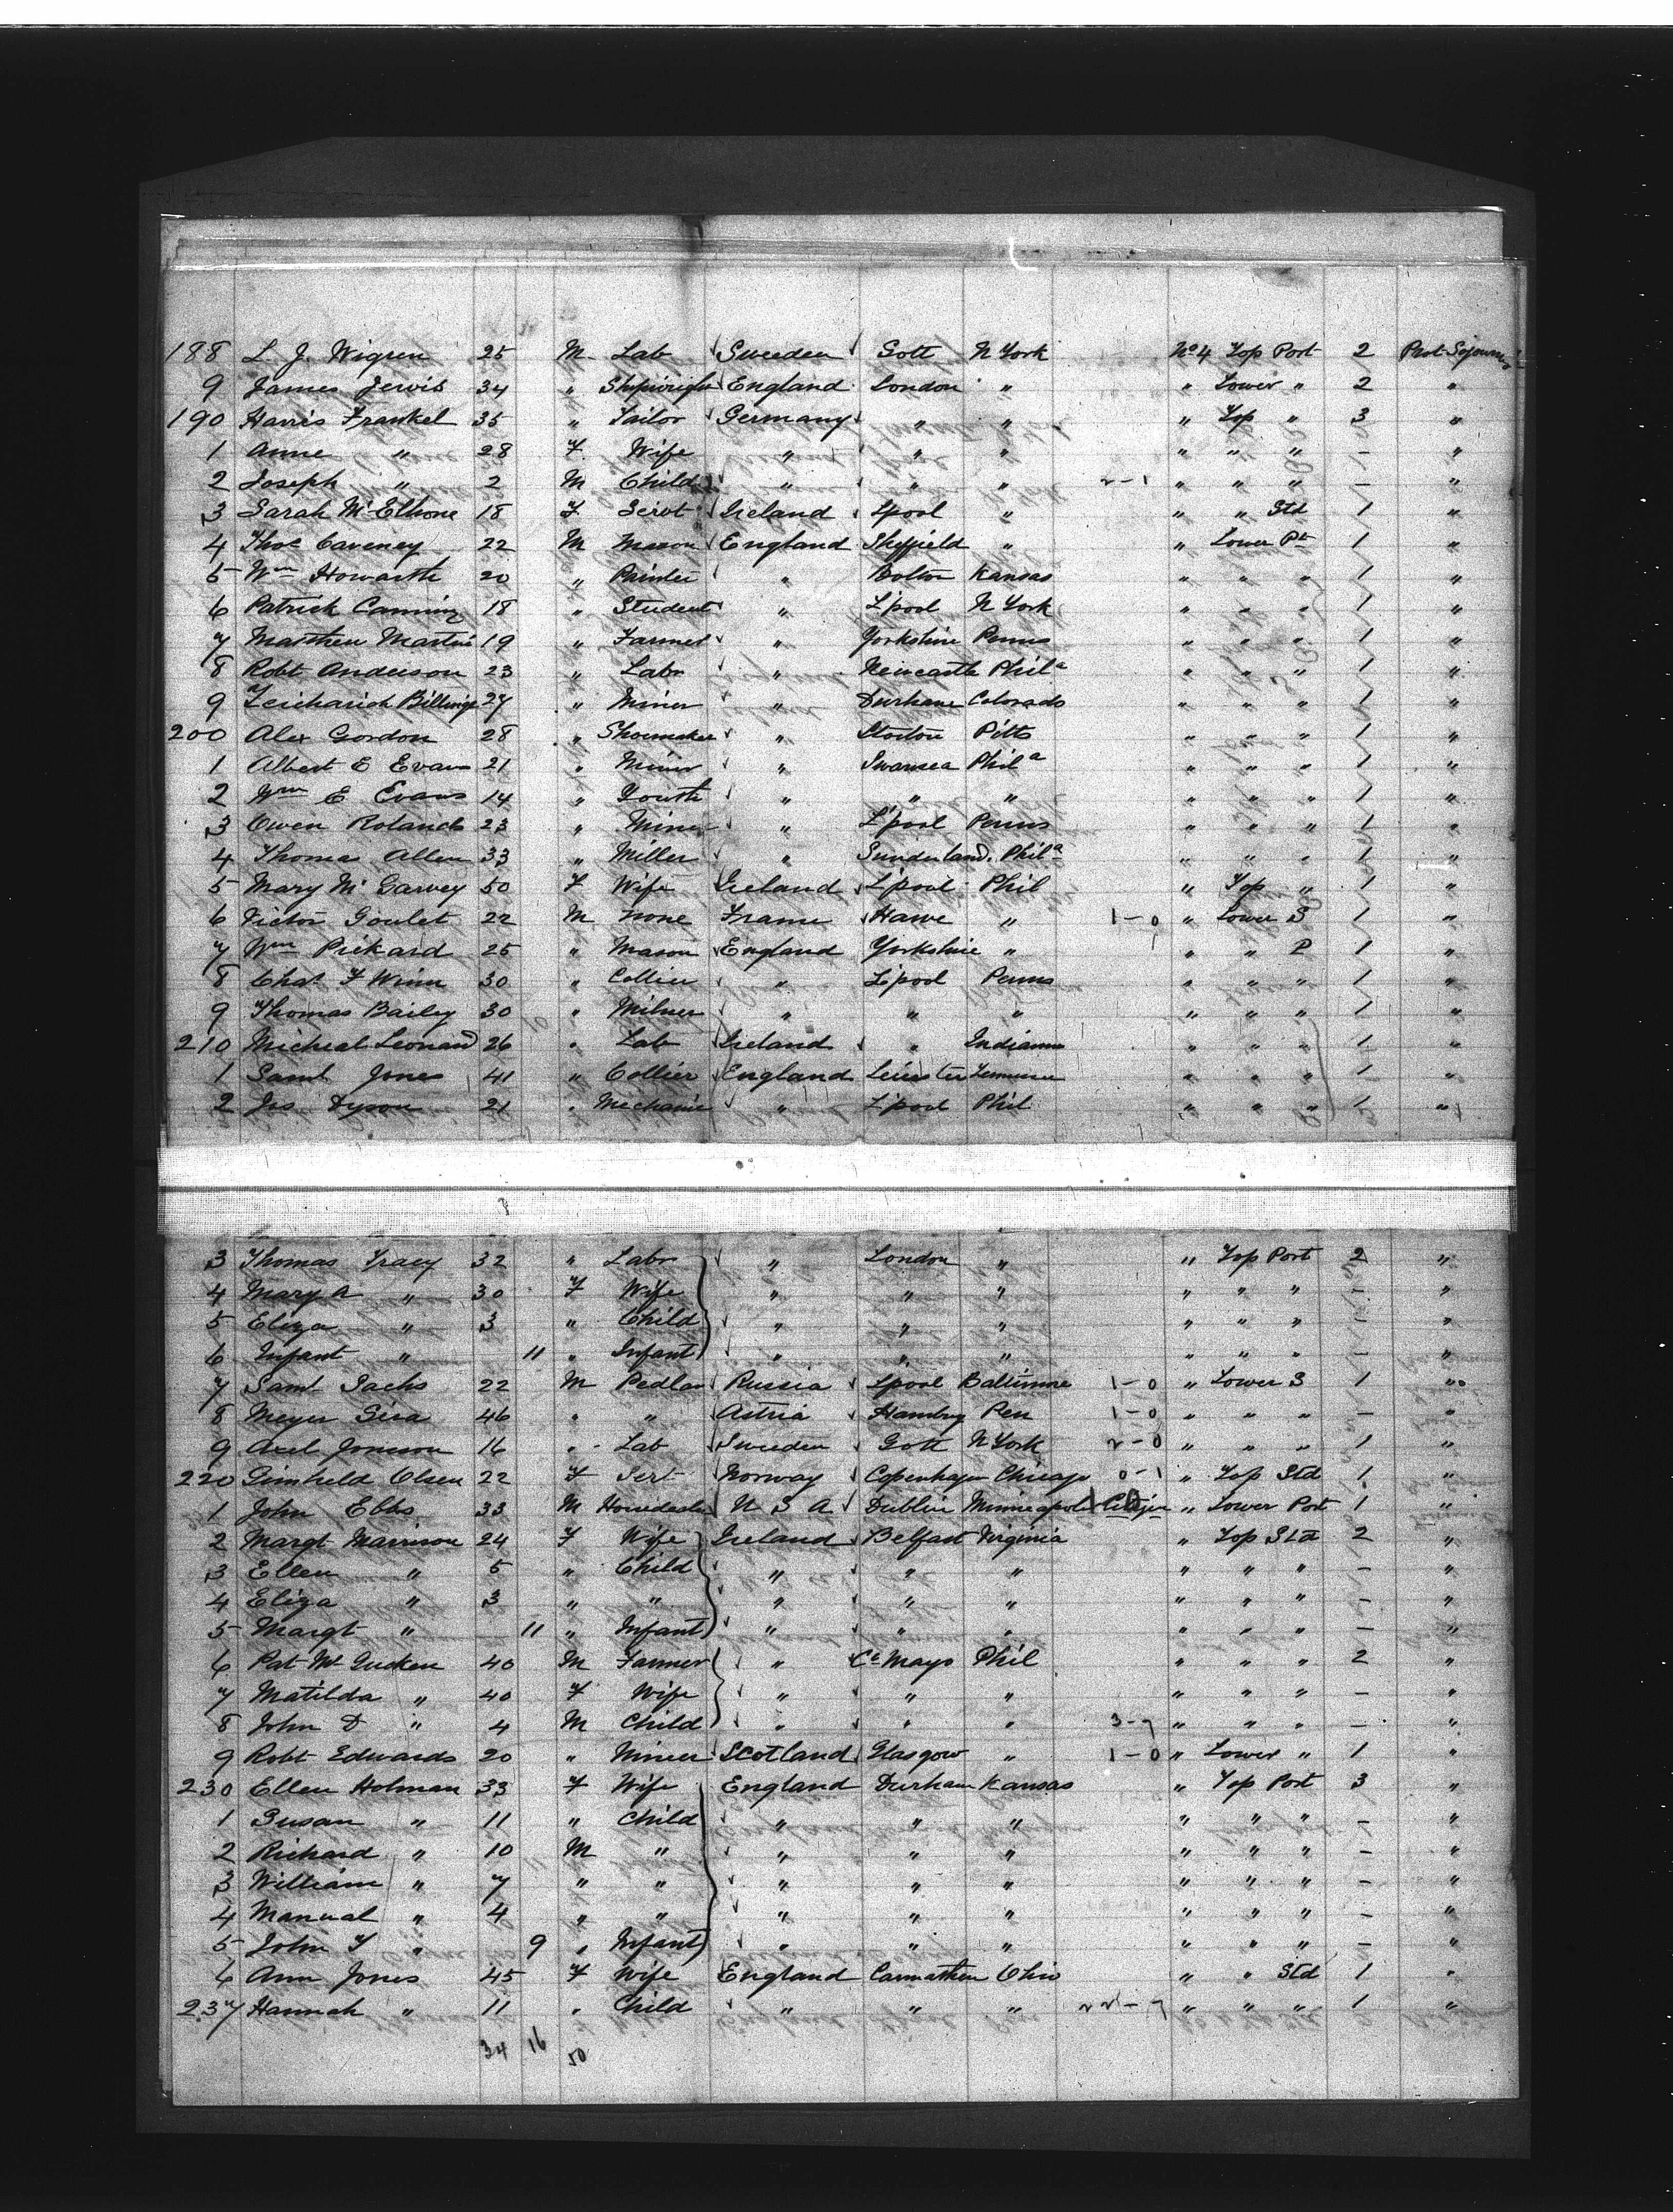 188 L. J. Wigren 25 M Lab Sweden Gott N York No 4 Top Port 2 Prot Sojourng
9 James Jervis 34 " Shipwright England London " " Lower " 2 "
190 Harris Frankel 35 " Tailor Germany " " " Top " 3 "
1 Anne " 28 F Wife " " " " " " - "
2 Joseph " 2 M Child " " " 2-1 " " " - "
3 Sarah McElhone 18 F Servt Ireland Lpool " " " Std 1 "
4 Thos Caveney 22 M Mason England Sheffield " " Lower Pt 1 "
5 Wm Howarth 20 " Painter " Bolton Kansas " " " 1 "
6 Patrick Canning 18 " Student " L'pool N York " " " 1 "
7 Matthew Martin 19 " Farmer " Yorkshire Penns " " " 1 "
8 Robt Anderson 23 " Labr " Newcastle Phila " " " 1 "
9 Billings 27 " Miner " Durham Colorado " " " 1 "
200 Alex Gordon 28 " Shoemaker " Stockton Pitts " " " 1 "
1 Albert E Evans 21 " Miner " Swansea Phila " " " 1 "
2 Wm E Evans 14 " Youth " " " " " " 1 "
3 Owen Rolands 23 " Miner " L'pool Penns " " " 1 "
4 Thoma Allen 33 " Miller " Sunderland. Phila " " " 1 "
5 Mary McGarvey 50 F Wife Ireland L'pool Phil " Top " 1 "
6 Victor Goulet 22 M None Frame Havre " 1-0 " Lower S 1 "
7 Wm Pickard 25 " Mason England Yorkshire " " " P 1 "
8 Chas F Winn 30 " Collier " L'pool Penns " " " 1 "
9 Thomas Bailey 30 " Milner " " " " " " 1 "
210 Micheal Leonard 26 " Lab Ireland " Indianna " " " 1 "
1 Saml Jones 41 " Collier England Leicester Tennessee " " " 1 "
2 Jos Dyson 21 " Mechanic " L'pool Phil " " " 1 "
3 Thomas Tracy 32 " Labr " London " " Top Port 2 "
4 Mary A " 30 F Wife " " " " " " - "
5 Eliza " 3 " Child " " " " " " - "
6 Infant " 11 " Infant " " " " " " - "
7 Saml Sachs 22 M Pedlar Russia Lpool Baltimore 1-0 " Lower S 1 "
8 Meyer Sira 46 " " Astria Hambrg Pen 1-0 " " " - "
9 Axel Jonsson 16 " Lab Sweden Gott N York 2-0 " " " 1 "
220 Gimheld Olsen 22 F Sert Norway Copenhagen Chicago 0-1 " Top Std 1 "
1 John Ebbs 33 M U S A Dublin Minneapolis Citizen " Lower Port 1 "
2 Margt Marrison 24 F Wife Ireland Belfast Virginia " Top Std 2 "
3 Ellen " 5 " Child " " " " " " - "
4 Eliza " 3 " " " " " " " " - "
5 Margt " 11 " Infant " " " " " " - "
6 Pat McGucken 40 M Farmer " Co Mayo Phil " " " 2 "
7 Matilda " 40 F Wife " " " " " " - "
8 John D " 4 M Child " " " 3-7 " " " - "
9 Robt Edwards 20 " Miner Scotland Glasgow " 1-0 " Lower " 1 "
230 Ellen Holman 33 F Wife England Durham Kansas " Top Port 3 "
1 Susan " 11 " Child " " " " " " - "
2 Richard " 10 M " " " " " " " - "
3 William " 7 " " " " " " " " - "
4 Manual " 4 " " " " " " " " - "
5 John T " 9 " Infant " " " " " " - "
6 Ann Jones 45 F Wife England Carmarthen Ohio " " Std 1 "
237 Hannah " 11 " Child " " " 22-7 " " " 1 "
34 16 50